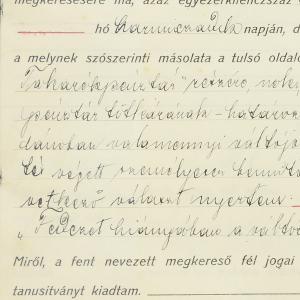 megkeresésére ma, azaz egyezerkilencszáz
hó harminczadik napján, d
a melynek szószerinti másolata a tulsó oldalo
Takarékpénztár" részére,
pénztár  - határoz
dásban valamennyi váltója
tés végett személyesen bemuta
vetkező választ nyertem:
„Fedezet hiányában a váltó
Miről, a fent nevezett megkereső fél jogai
tanusítványt kiadtam.